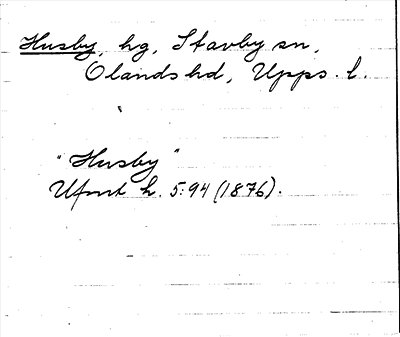 Husby, hg, Stavby sn,
Olands hd, Upps. l.
"Husby"
Ufmt h. 5:94 (1876).